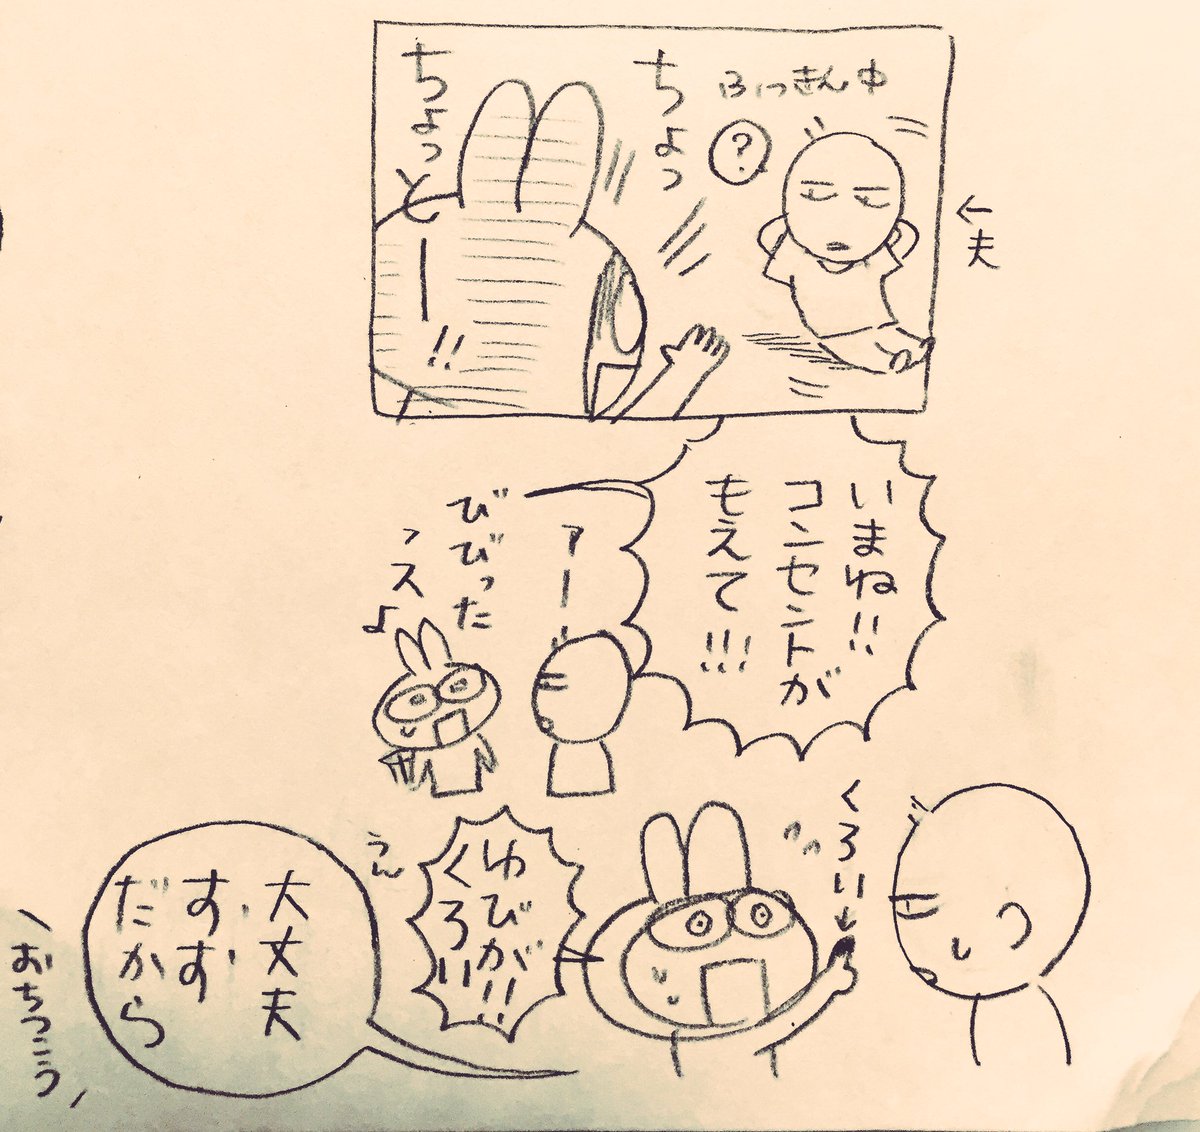 ふっきん中
?
←夫
ちょっ
ちょっとー!!
いまね!!
コンセントが
もえて!!!
アー
びびった
っスよ
くろい→
ゆびが!!
くろい
うん
大丈夫
すす
だから
\おちつこう/